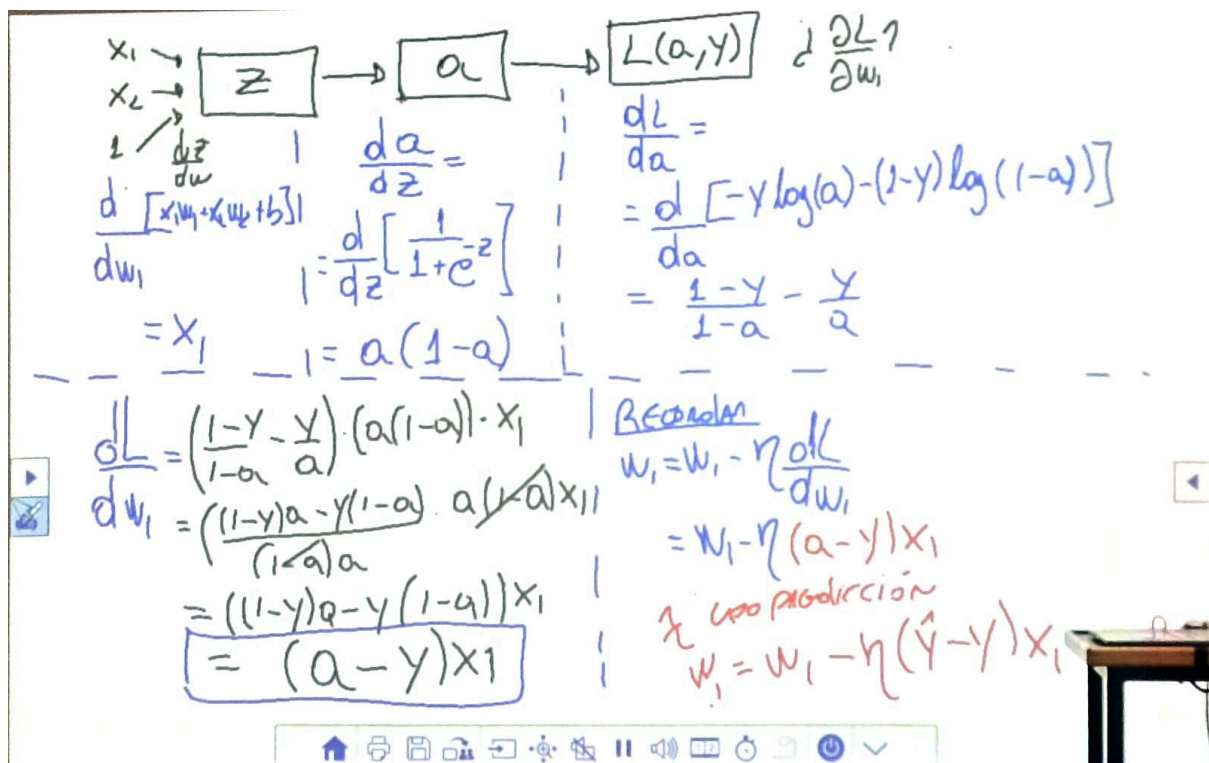 x₁
x₂
1
z
a
L(a,y)
¿ ∂L/∂w₁ ?
dz/dw
d/dw₁ [x₁w₁+x₂w₂+b]
= x₁
da/dz =
= d/dz [1/(1+e^-z)]
= a(1-a)
dL/da =
= d/da [-y log(a) - (1-y) log(1-a)]
= (1-y)/(1-a) - y/a
dL/dw₁ = ((1-y)/(1-a) - y/a) · (a(1-a)) · x₁
= (((1-y)a - y(1-a))/((1-a)a) · a(1-a)x₁
= ((1-y)a - y(1-a))x₁
= (a-y)x1
Recordar
w₁ = w₁ - η dL/dw₁
= w₁ - η(a-y)x₁
predicción
w₁ = w₁ - η(ŷ-y)x₁